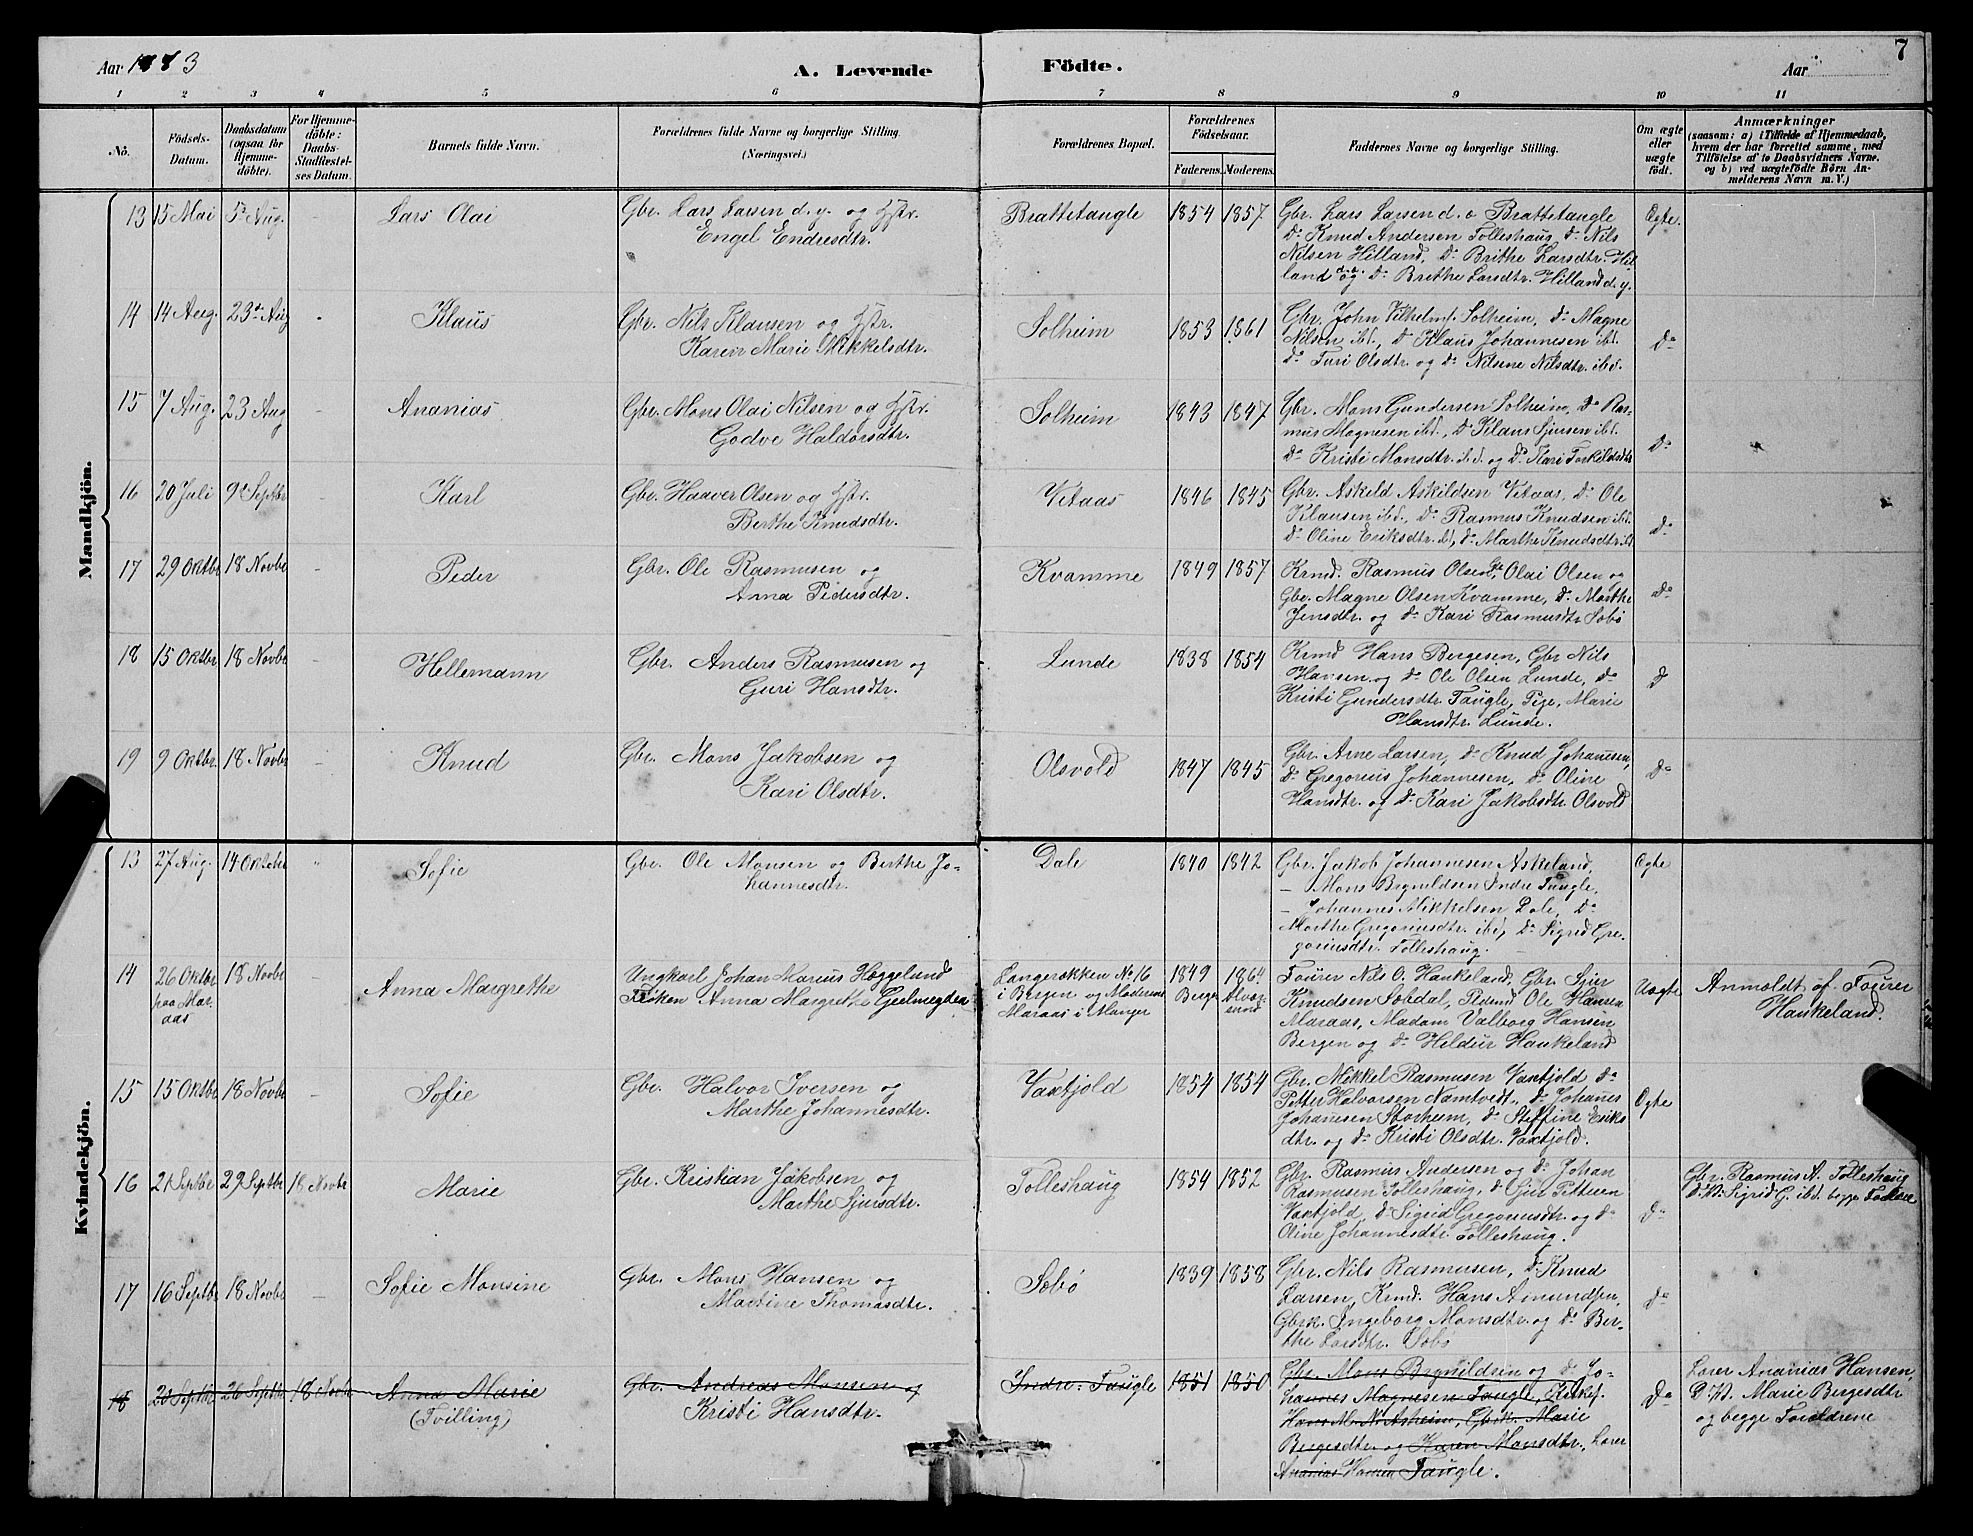 Aar 1883
A. Levende Födte.
Aar
7
1 2 3 4 5 6 7 8 9 10 11
Nô.
Födsels-Datum.
Daabsdatum (ogsaa for Hjemme-döbte).
For Hjemme-döbte: Daabs-Stadfæstel-ses Datum.
Barnets fulde Navn.
Forældrenes fulde Navne og borgerlige Stilling. (Næringsvei.)
Forældrenes Bopæl.
Forældrenes Födselsaar.
Faderens. Moderens.
Faddernes Navne og borgerlige Stilling.
Om ægte eller uægte födt.
Anmærkninger
(saasom: a) i Tilfælde af Hjemmedaab, hvem der har forrettet samme, med Tilföielse af to Daabsvidners Navne. og b) ved uægtefödte Börn An-melderens Navn m. V.)
Mandkjön.
13 15 Mai 5te Aug. - Lars Olai
Gbr. Lars Larsen d. y. og Hstr.
Engel Endresdtr.
Brattetaugle 1854 1857
Gbr. Lars Larsen d. æ Brattetaugle
Do Knud Andersen Tolleshaug, do Nils
Nilsen Hilland, Do Brithe Larsdtr. Hil-
land d. æ. og Do Brithe Larsdtr. Hilland d. y.
Ægte.
14 14 Aug. 23de Aug - Klaus
Gbr. Nils Klausen og Hstr.
Karen Marie Mikkelsdtr.
Solheim 1853 1861
Gbr. John Vilhelms. Solheim, do Magne
Nilsen ibd., Do Klaus Johannesen ibd.
Do Turi Olsdtr. og Do Nilsine Nilsdtr. ibd.
Do
15 7 Aug. 23 Aug - Ananias
Gbr. Mons Olai Nilsen og Hstr.
Godve Haldorsdtr.
Solheim 1843 1847
Gbr. Mons Gundersen Solheim, do Ras-
mus Magnesen ibd., Do Klaus Sjursen ibd.
Do Kristi Monsdtr. ibd. og Do Kari Torkildsdtr
Do
16 20 Juli 9de Septbr - Karl
Gbr. Haaver Olsen og Hstr.
Berthe Knudsdtr.
Vetaas 1846 1845
Gbr. Askeld Askildsen Vetaas, Do Ole
Klausen ibd., Do Rasmus Knudsen ibd.
Do Oline Eriksdtr. ibd, do Marthe Knudsdtr ibd
Do
17 29 Oktbr 18 Novbr - Peder
Gbr. Ole Rasmusen og
Anna Pedersdtr.
Kvamme 1849 1857
Krmd. Rasmus Olsen, Do Olai Olsen og
Gbr. Magne Olsen Kvamme, Do Marthe
Jensdtr. og do Kari Rasmusdtr Sæbø
Do
18 15 Oktbr 18 Novbr - Hellemann
Gbr. Anders Rasmusen og
Guri Hansdtr.
Lunde 1838 1854
Krmd Hans Bergesen, Gbr Nils
Hansen og Do Ole Olsen Lunde, Do
Kristi Gundersdtr Taugle, Pige, Marie
Hansdtr. Lunde.
Do
19 9 Oktbr. 18 Novbr - Knud
Gbr. Mons Jakobsen og
Kari Olsdtr.
Olsvold 1847 1845
Gbr. Arne Larsen, Do Knud Johannesen,
Do Gregorius Johannesen, do Oline
Hansdtr. og Do Kari Jakobsdtr Olsvold
Do
Kvindekjön.
13 27 Aug. 14 Oktobr " Sofie
Gbr. Ole Monsen og Berthe Jo-
hannesdtr.
Dale 1840 1842
Gbr. Jakob Johannesen Askeland,
- Mons Brynildsen Indre Taugle,
- Johannes Mikkelsen Dale, Do
Marthe Gregoriusdtr. ibd, Do Sigrid Gre-
goriusdtr. Tolleshaug.
Ægte
14 26 Oktbr paa Mar-aas 18 Novbr Anna Margrethe
Ungkarl Johan Marius Hæggelund
Frøken Anna Margrethe Geelmeyden
Langerækken No 16
i Bergen og Moderens
Maraas i Manger
1849 Bergen 1864 Alver-sund
Fourer Nils O. Haukeland, Gbr. Sjur
Knudsen Sæbdal, Pedmd Ole Hansen
Maraas, Madam Valborg Hansen
Bergen og do Hildur Haukeland
Uægte
Anmeldt af Fourer
Haukeland.
15 15 Oktbr 18 Novbr - Sofie
Gbr. Halvor Iversen og
Marthe Johannesdtr.
Vaxtjold 1854 1854
Gbr. Mikkel Rasmusen Vaxtjold do
Petter Halvorsen Namtvedt, do Johanes
Johannesen Storheim, do Steffine Eriks
dtr. og do Kristi Olsdtr. Vaxtjold.
Ægte
16 21 Septbr 29 Septbr 18 Novbr Marie
Gbr. Kristian Jakobsen og
Marthe Sjursdtr.
Tolleshaug 1854 1852
Gbr. Rasmus Andersen og do Johan
Rasmusen Tolleshaug, do Sjur Pettersen
Vaxtjold, do Sigrid Gregoriusdtr. og do
Oline Johannesdtr Tolleshaug.
Do
Gbr. Rasmus A. Tolleshaug
D. V. Sigrid G. ibd. begge Faddere
17 16 Septbr 18 Novbr - Sofie Monsine
Gbr. Mons Hansen og
Martine Thomasdtr.
Sæbø 1839 1858
Gbr. Nils Rasmusen, Do Knud
Larsen, Krmd. Hans Amundsen,
Gbrk. Ingeborg Monsdtr. og Do Ber-
the Larsdtr. Sæbø
Do
18 20 Septbr 26 Septbr 18 Novbr Anna Marie
(Tvilling)
Gbr. Andreas Monsen og
Kristi Hansdtr.
Indre-Taugle 1851 1850
Gbr. Mons Brynildsen og do Jo-
hannes Magnesen Taugle,
Hans M. N. Askeim, Gbrk. Marie
Bergesdtr og Karen Monsdtr., Lærer
Ananias Hansen Taugle.
Do
Lærer Ananias Hansen,
D. V. Marie Bergesdtr
og begge Forældrene